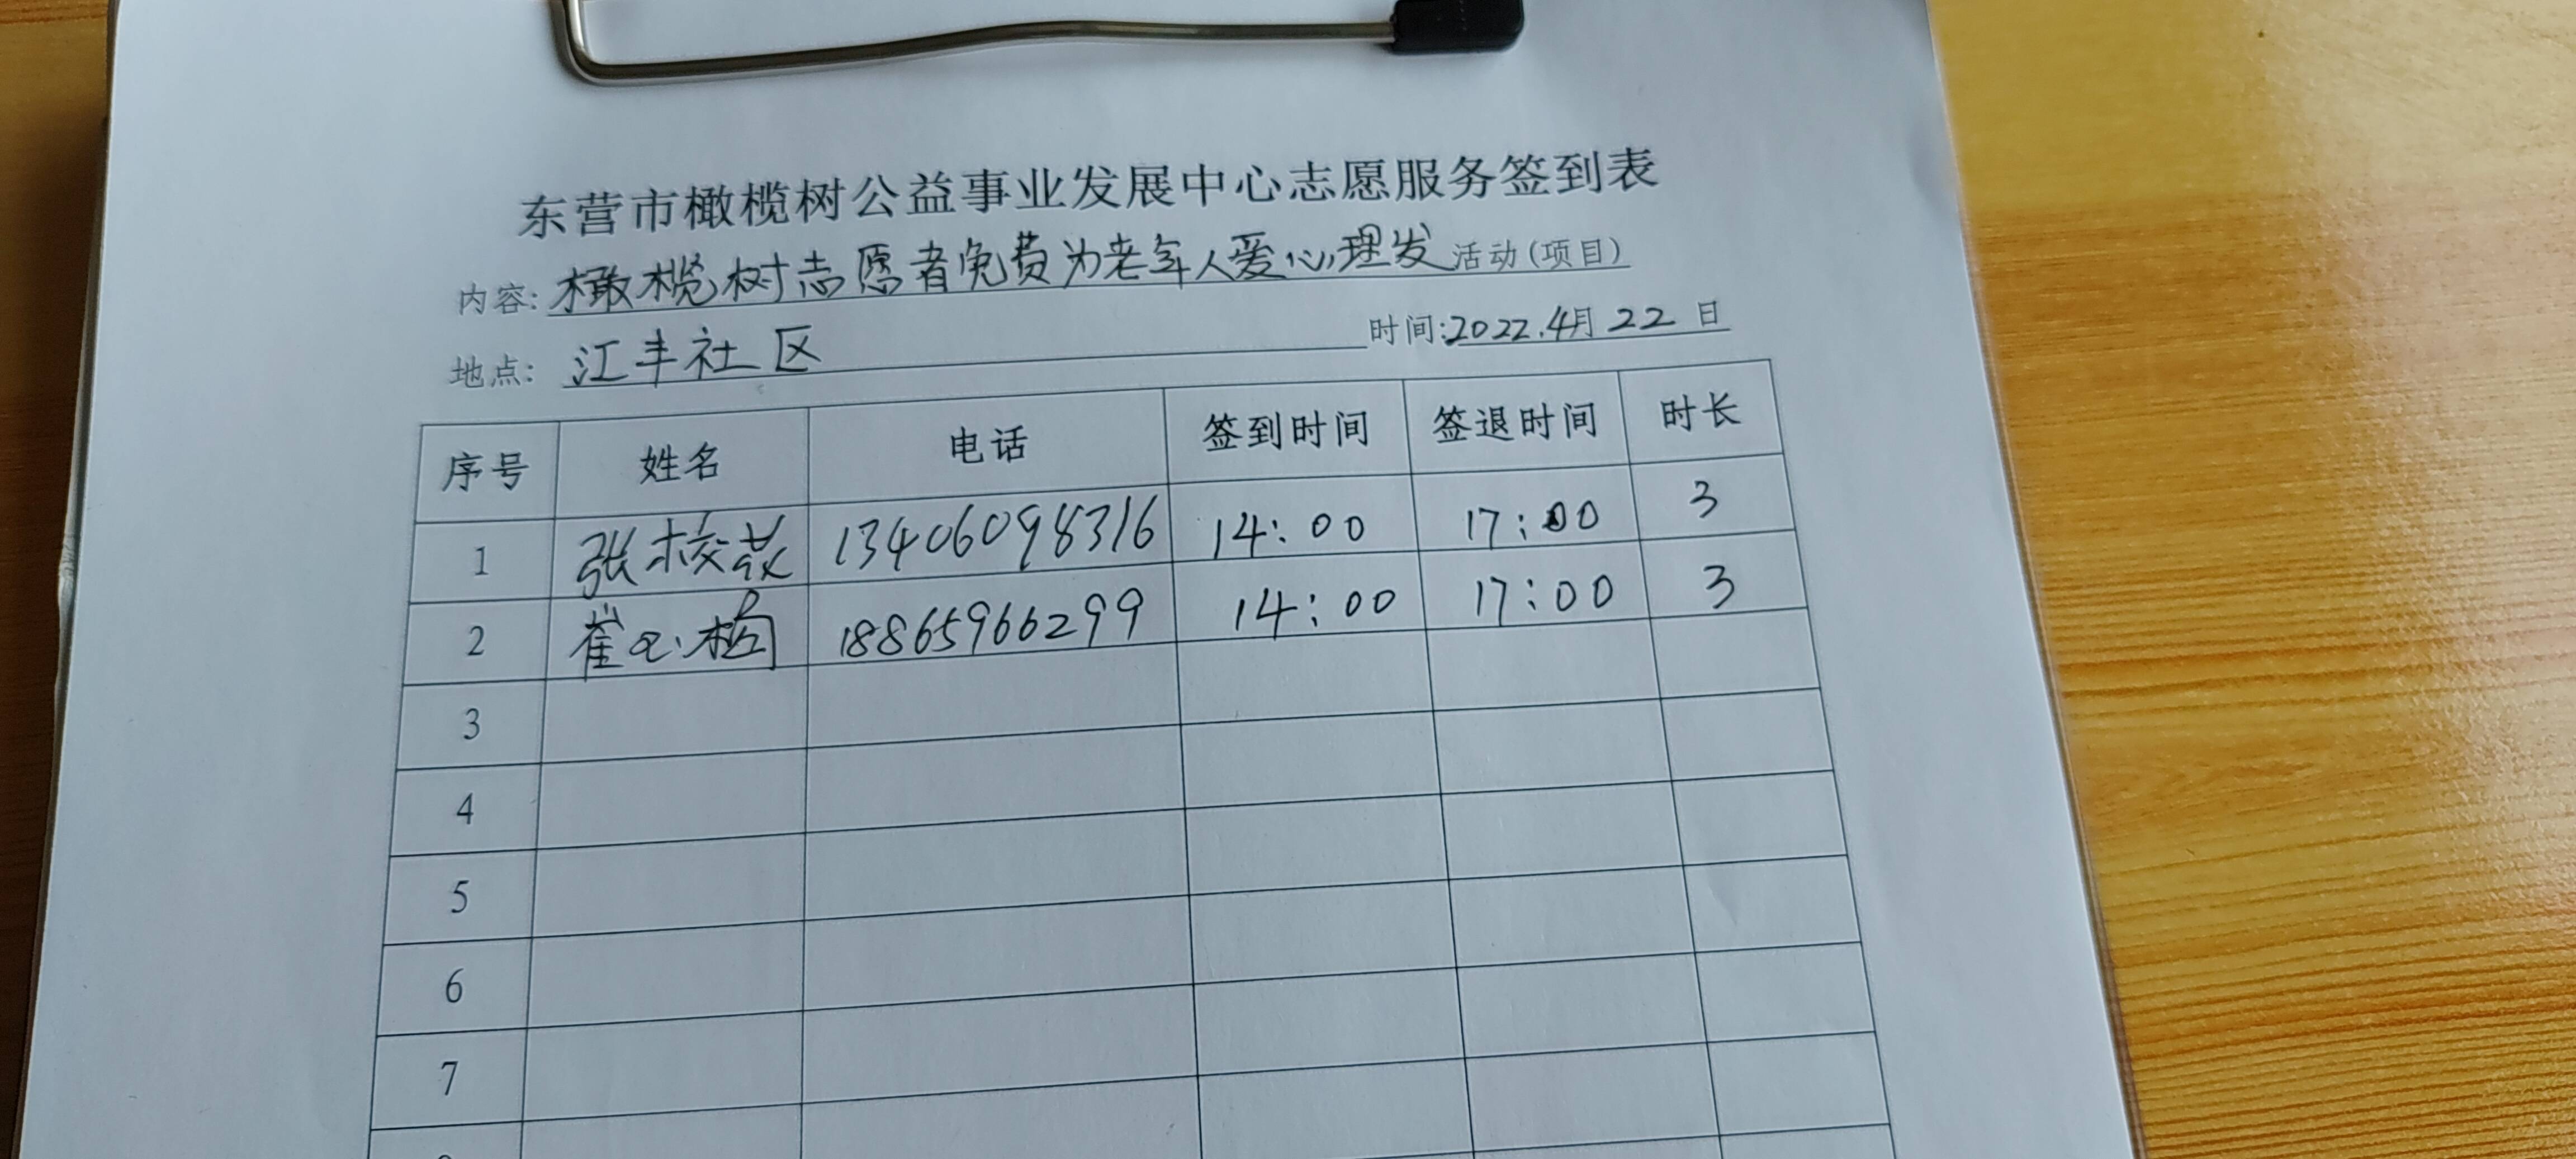 东营市橄榄树公益事业发展中心志愿服务签到表
内容:橄榄树志愿者免费为老年人爱心理发活动(项目)
地点: 江丰社区 时间:2022.4月22日
序号 姓名 电话 签到时间 签退时间 时长
1 张 13406098316 14:00 17:00 3
2 崔 18865966299 14:00 17:00 3
3
4
5
6
7